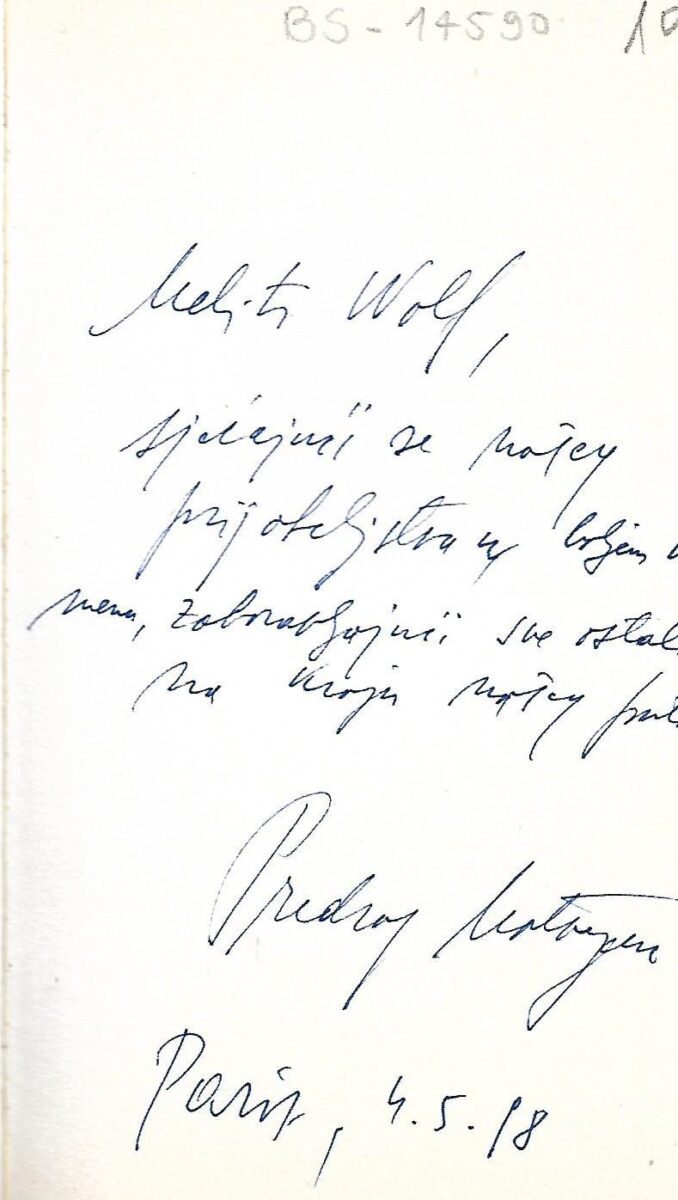 BS-14590
Meliti Wolf,
sjećajući se našeg
prijateljstva u boljem
mena, zaboravljajući sve ostal
na kraju našeg
Predrag Matvejev
Pariz, 4.5.98